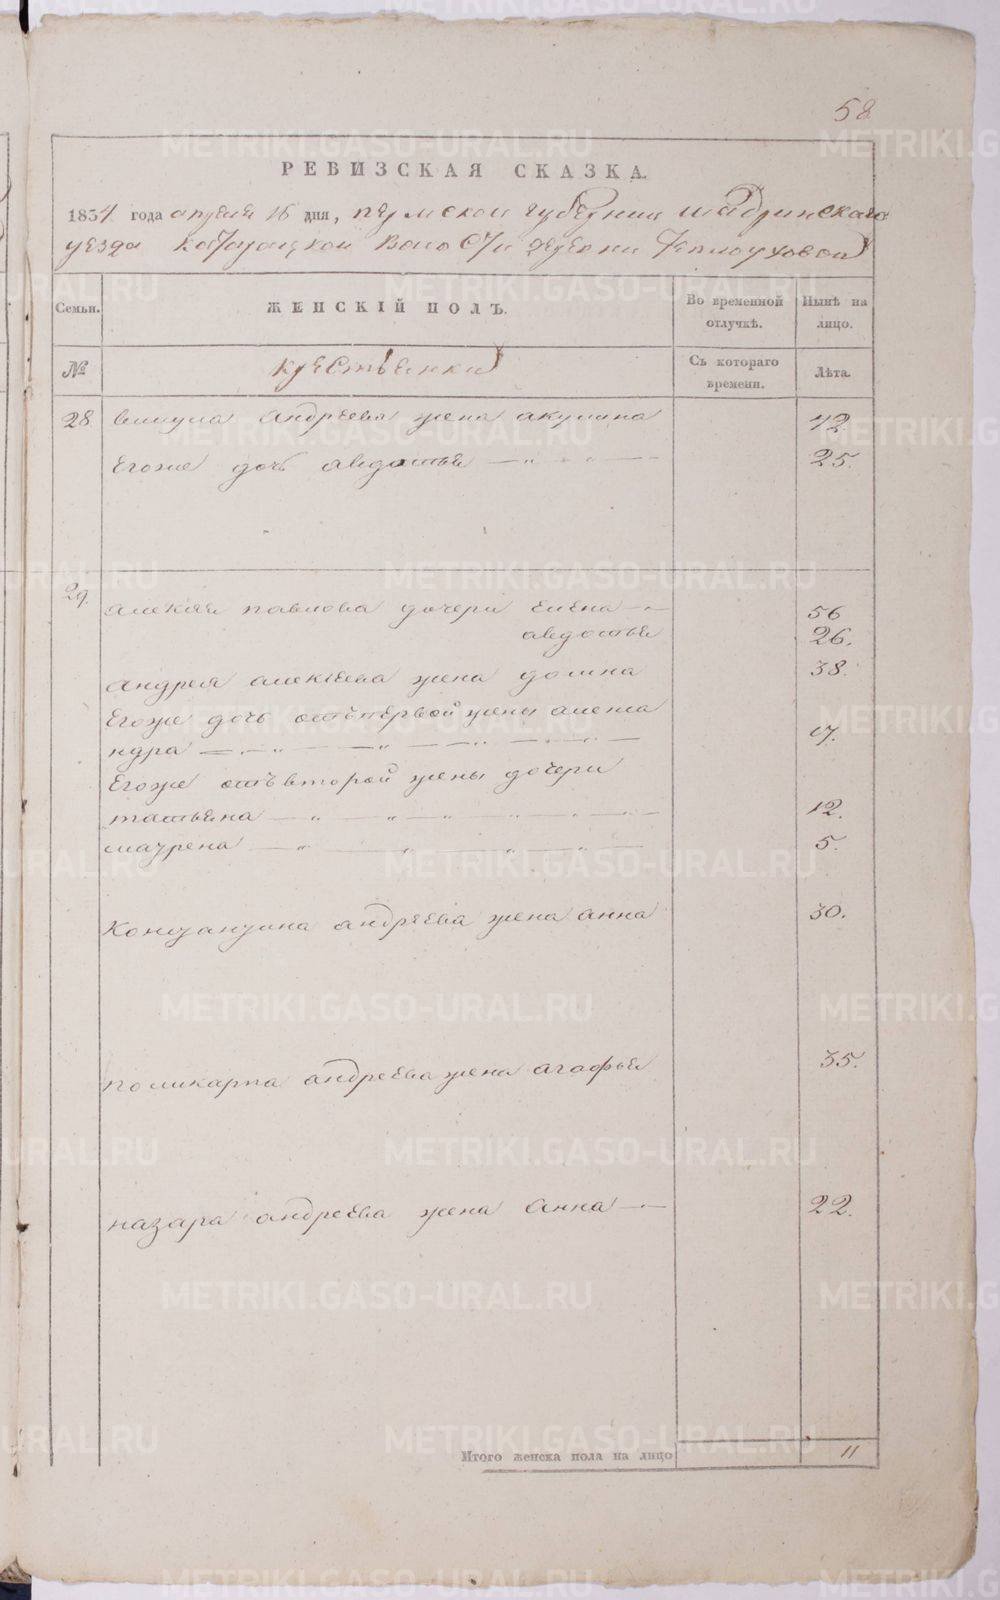 58
РЕВИЗСКАЯ СКАЗКА.
1834 года апреля 16 дня, пермской губернии шадринскаго
уезда Волости деревни
Семьи. ЖЕНСКІЙ ПОЛЪ. Во временной отлучкѣ. Нынѣ на лицо.
№ крестьянки Съ котораго времени. Лѣта.
28. андреева жена акулина 42.
Егоже дочь авдотья 25.
29. алексея павлова дочери елена 56
авдотья 26.
андрея алексеева жена домна 38.
Егоже дочь отъ первой жены алекса
ндра 17.
Егоже отъ второй жены дочери
татьяна 12.
маурена 5.
Констянтина андреева жена анна 30.
поликарпа андреева жена агафья 35.
назара андреева жена анна 22.
Итого женска пола на лицо 11
METRIKI.GASO-URAL.RU